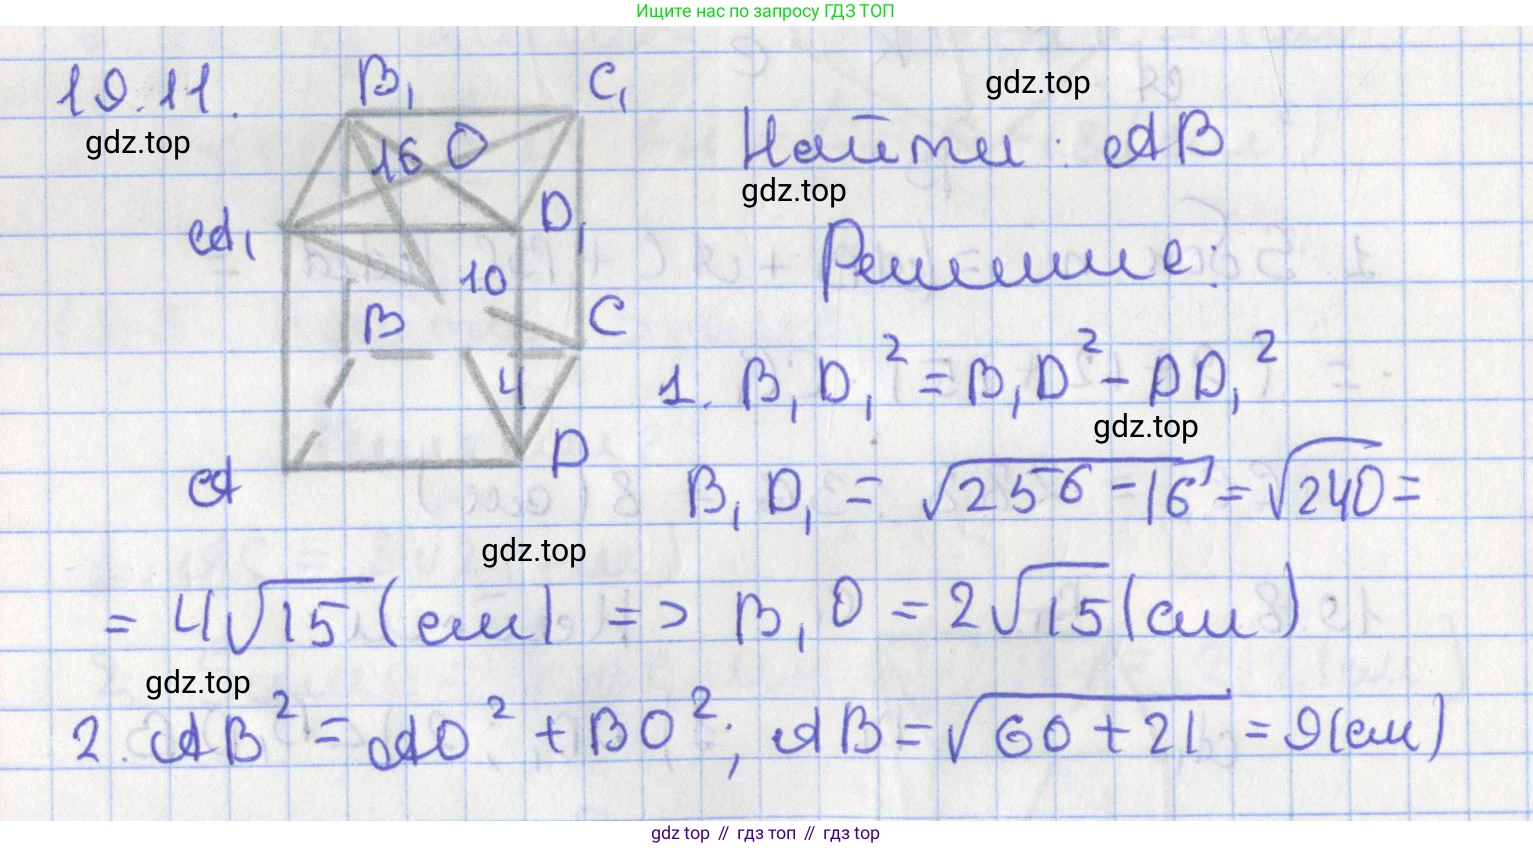 Ищите нас по запросу ГДЗ ТОП
19.11.
B₁
C₁
gdz.top
gdz.top
16
O
Найти: AB
gdz.top
A₁
D₁
Решение:
10
B
C
4
1. B₁D₁² = B₁D² - DD₁²
gdz.top
A
D
B₁D₁ = √256 - 16 = √240 =
gdz.top
= 4√15 (см) => B₁O = 2√15 (см)
gdz.top
2. AB² = AO² + BO²; AB = √60 + 21 = 9(см)
gdz top // гдз топ // гдз top